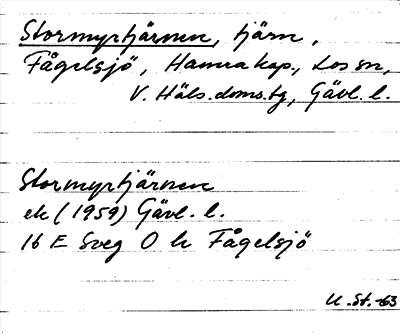 Stormyrtjärnen, tjärn,
Fågelsjö, Hamra kap., Los sn,
V. Häls. doms.tg, Gävl. l.
Stormyrtjärnen
ek (1959) Gävl. l.
16 E Sveg O h Fågelsjö
U. St. -63